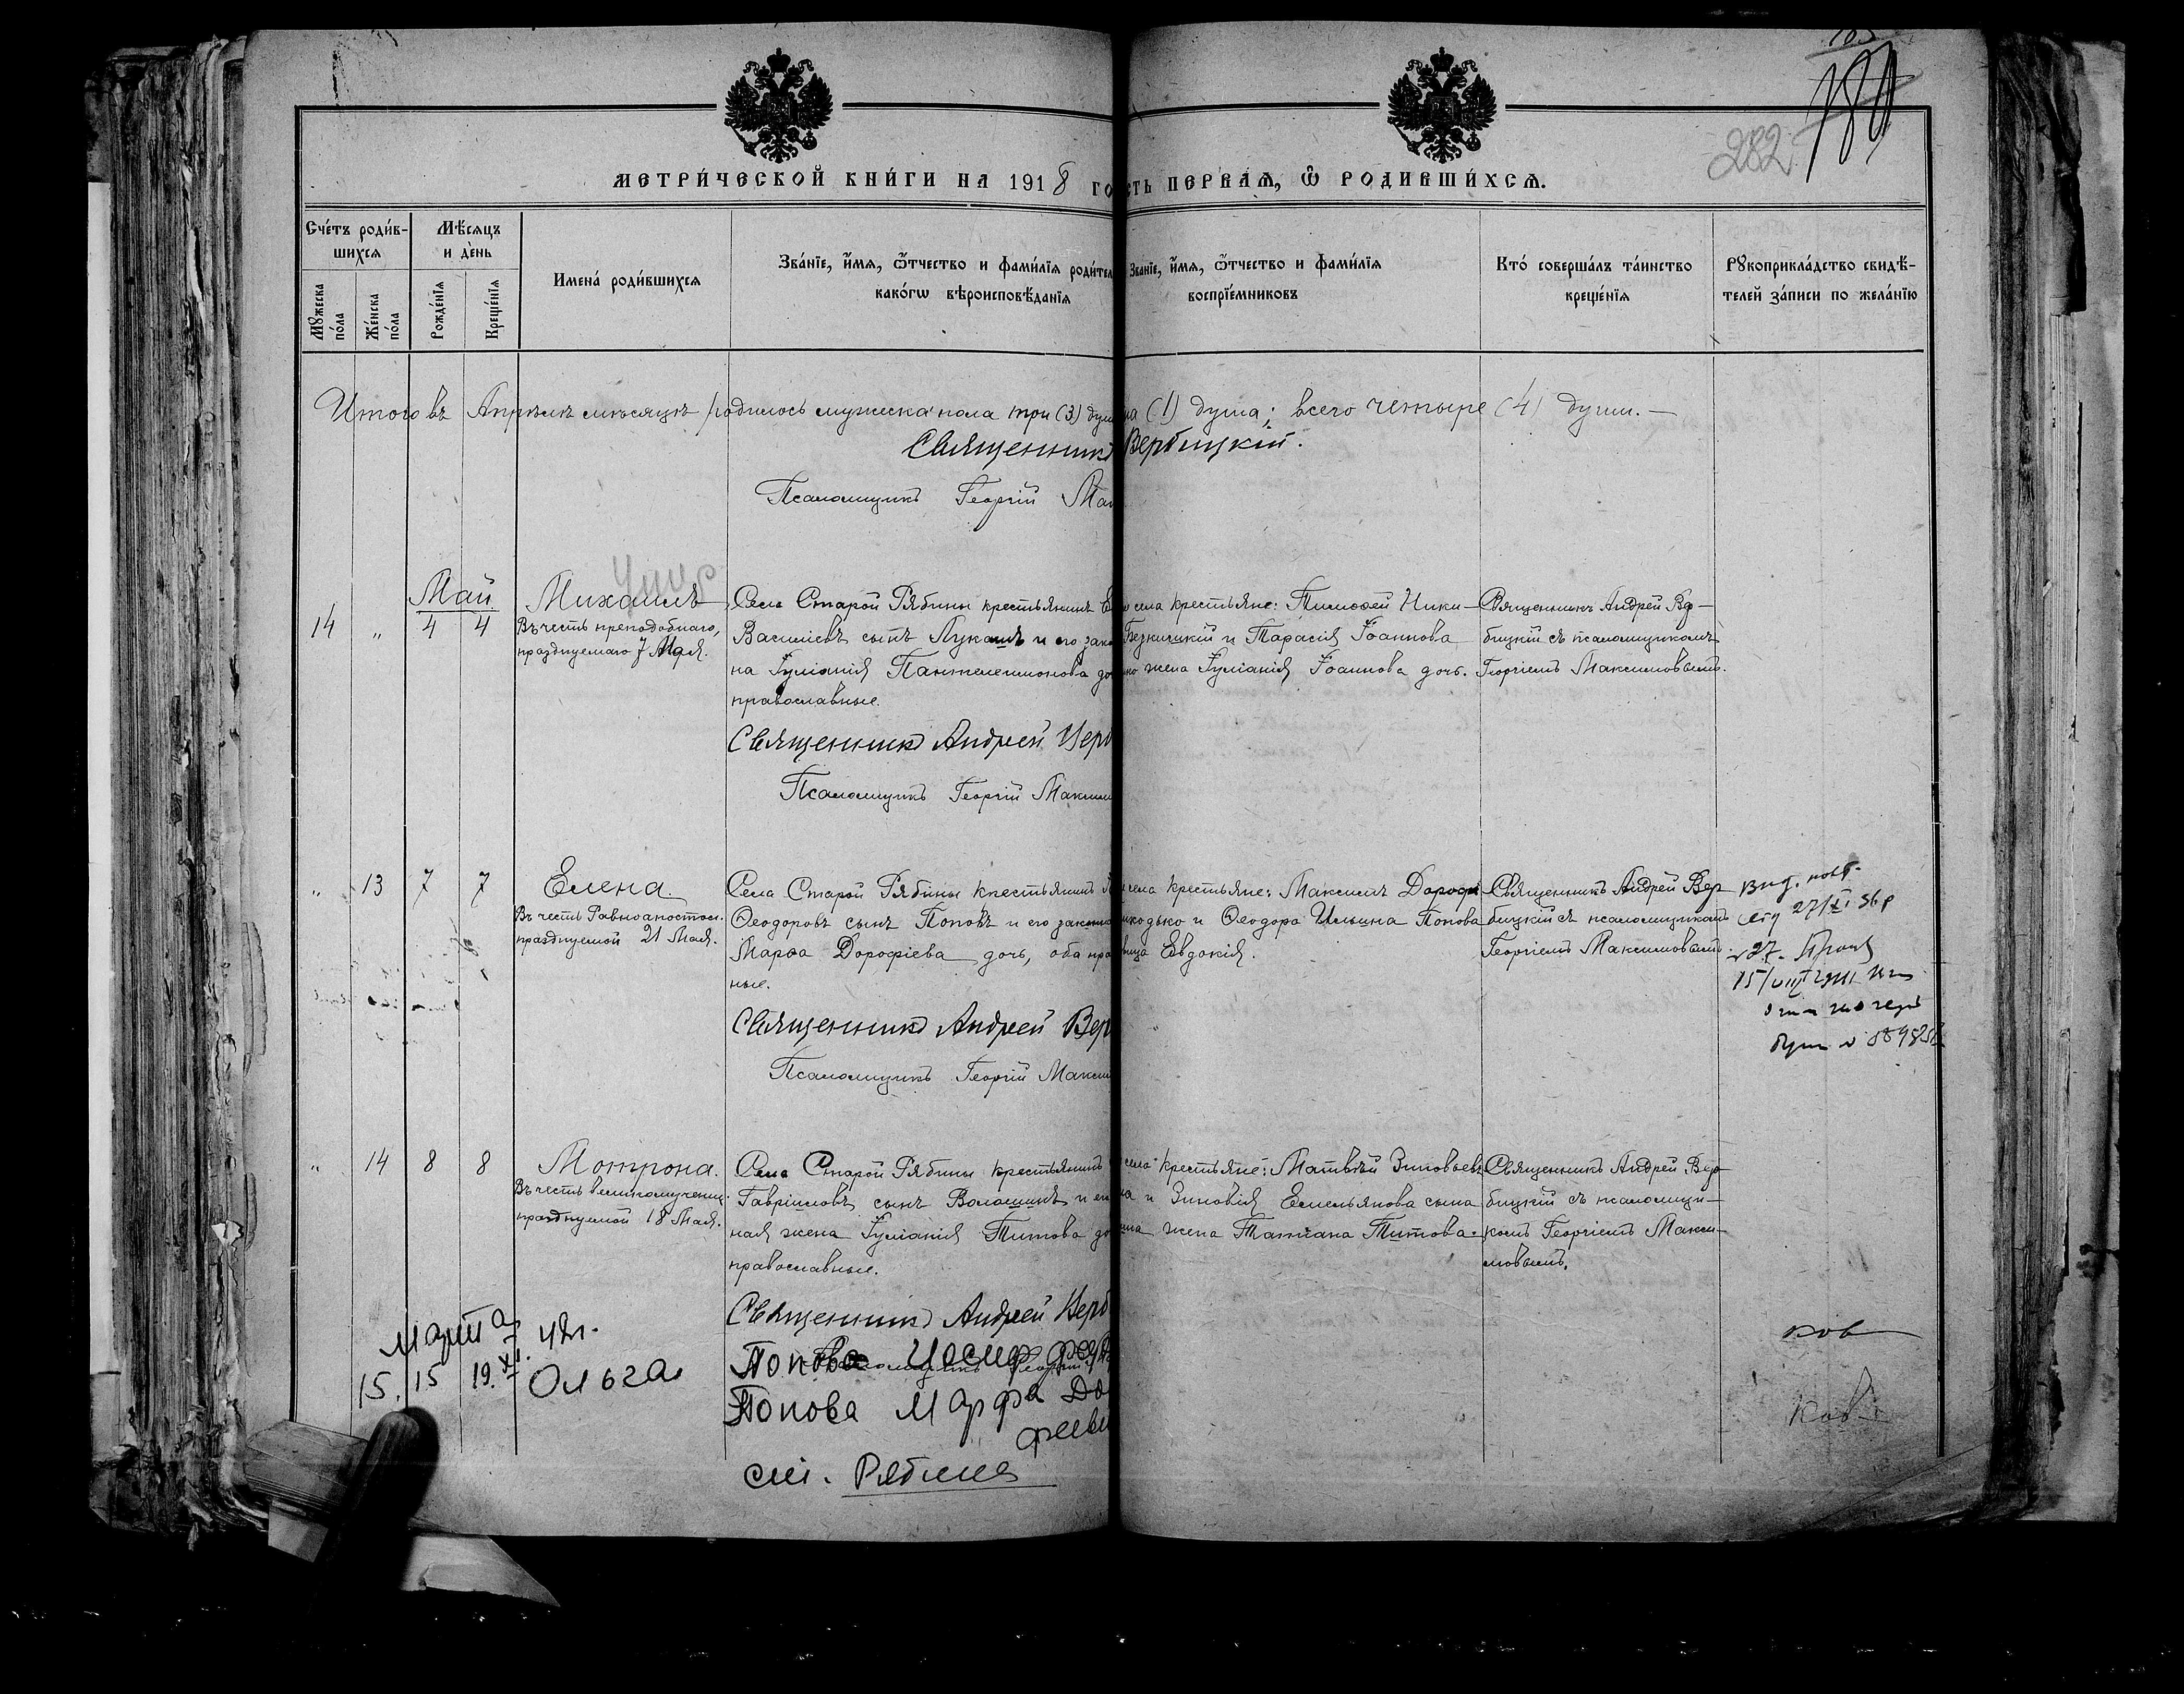 282
180
МЕТРИ́ЧЕСКОЙ КНИ́ГИ НА 1918 ГО
СТЬ ПЕРВАѦ, Ѿ РОДИВШИ́ХСѦ.
Сче́тъ роди́в-
шихсѧ
Мꙋ́жеска по́ла
Же́нска по́ла
Мѣ́сѧцъ и де́нь
Рожде́нїѧ
Креще́нїѧ
Имена́ роди́вшихсѧ
Зва́нїе, и́мѧ, ѻ́тчество и фами́лїѧ роди́тел
како́гѡ вѣроисповѣ́данїѧ
Зва́нїе, и́мѧ, ѻ́тчество и фами́лїѧ
воспрїе́мниковъ
Кто́ соверша́лъ та́инство
креще́нїѧ
Рꙋкоприкла́дство свидѣ́-
телей за́писи по жела́нїю
Итого въ Апрѣлѣ мѣсяцѣ родилось мужеска пола три (3) душ
на (1) душа; всего четыре (4) души. —
Священникъ
Вербицкій.
Псаломщикъ Георгій Мак
Май
14 „ 4 4
Михаилъ
Въ честь преподобнаго,
празднуемаго 7 Мая.
Села Старой Рябины крестьянинъ
Василіевъ сынъ Лукашъ и его зако
на Іуліанія Пантелеимонова до
православные.
Священникъ Андрей Верб
Псаломщикъ Георгій Максим
села крестьяне: Тимофей Ники-
и Тарасія Іоаннова
жена Іуліанія Іоаннова дочь.
Священникъ Андрей Вер-
бицкій съ псаломщикомъ
Георгіемъ Максимовымъ.
„ 13 7 7
Елена.
Въ честь Равноапостол.
празднуемой 21 Мая.
Села Старой Рябины крестьянинъ
Ѳеодоровъ сынъ Поповъ и его законна
Марѳа Дорофіева дочь, оба пра
ные.
Священникъ Андрей Вер
Псаломщикъ Георгій Макси
села крестьяне: Максимъ Дорофі
и Ѳеодора Ильина Попова
Евдокія.
Священникъ Андрей Вер
бицкій съ псаломщикомъ
Георгіемъ Максимовымъ.
27/XI 36 р
„ 14 8 8
Мотрона.
Въ честь великомучениц.
празднуемой 18 Мая.
Села Старой Рябины крестьянинъ
Гавріиловъ сынъ Волошинъ и его
ная жена Іуліанія Титова до
православные.
Священникъ Андрей Верб
села крестьяне: Матвѣй Зиновьевъ
и Зиновія Емельянова сына
жена Татіана Титова.
Священникъ Андрей Вер-
бицкій съ псаломщи-
комъ Георгіемъ Макси-
мовымъ.
Марта
42г.
15. 15 19.XI
Ольга
Попов Иосиф
Попова Марфа До
феевн
Рябина
ков
ков